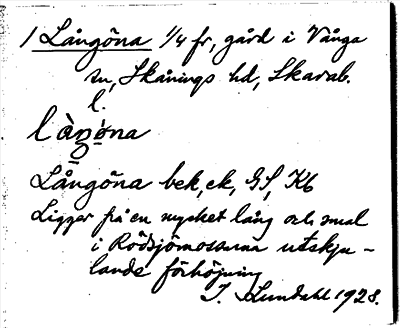 1 Långöna 1/4 fr, gård i Vånga
sn, Skånings hd, Skarab.
l.
làŋöna
Långöna bek, ek, GS, Kb
Ligger på en mycket lång och smal
i Rödsjömossarna utskju-
lande förhöjning
I. Lundahl 1928.